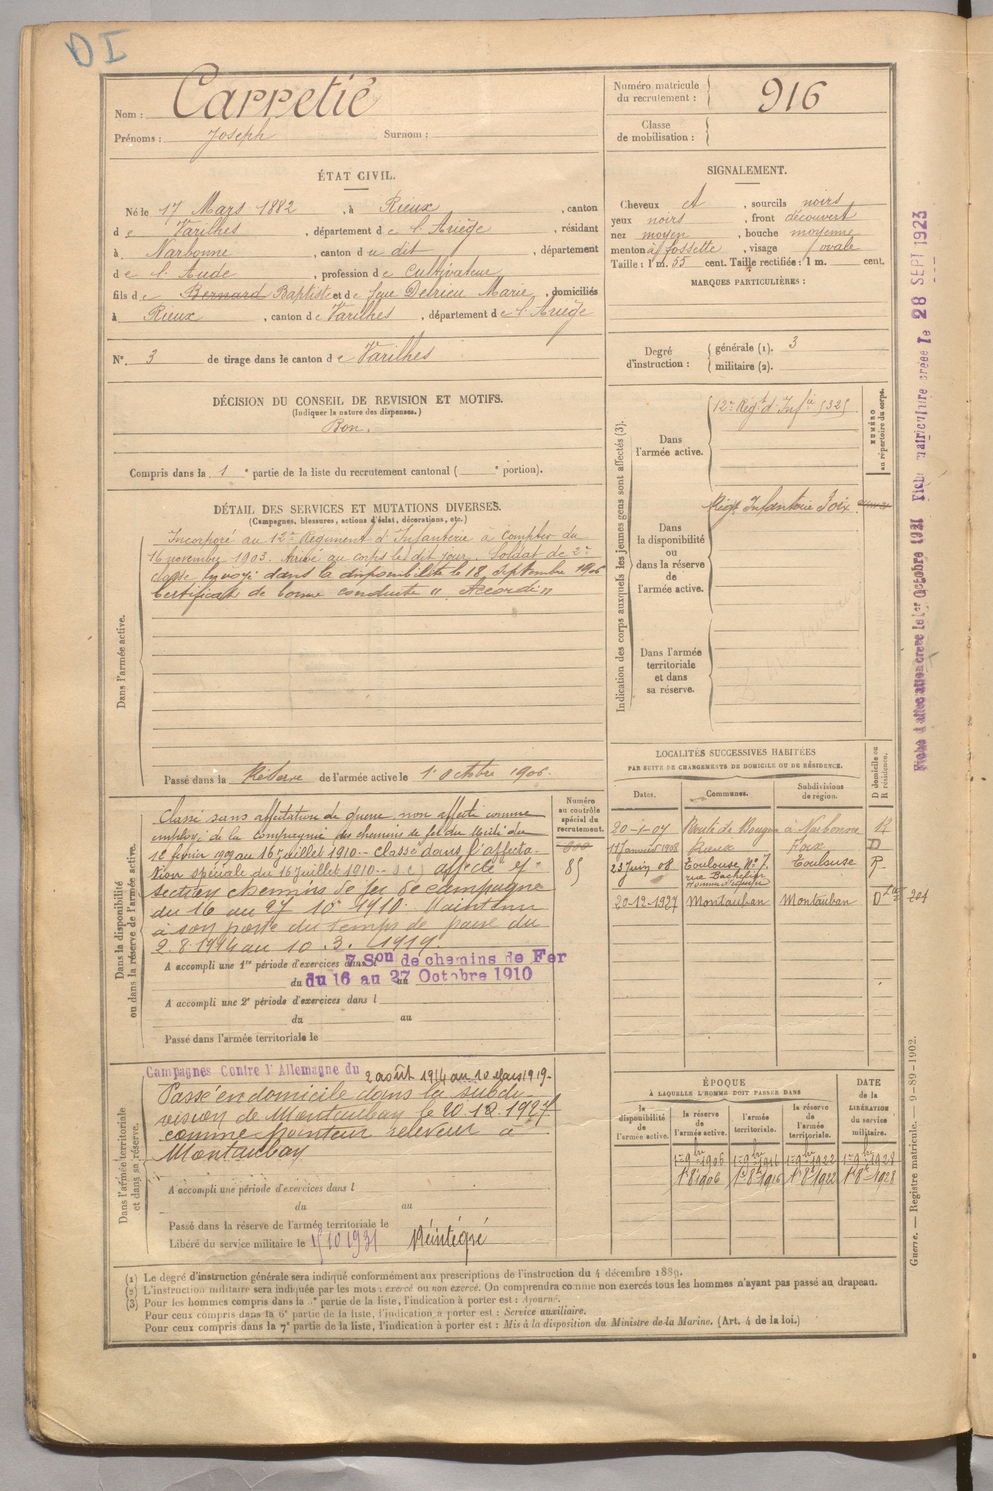 DI
Nom : Carretié
Prénoms : Joseph Surnom :
Numéro matricule du recrutement : 916
Classe de mobilisation :
ÉTAT CIVIL.
Né le 17 Mars 1882, à Rieux, canton
de Varilhes, département de l'Ariège, résidant
à Narbonne, canton du dit, département
de l'Aude, profession de Cultivateur
fils de Bernard Baptiste et de feue Delrieu Marie, domiciliés
à Rieux, canton de Varilhes, département de l'Ariège
N° 3 de tirage dans le canton de Varilhes
SIGNALEMENT.
Cheveux ct, sourcils noirs
yeux noirs, front découvert
nez moyen, bouche moyenne
menton à fossette, visage ovale
Taille : 1 m. 55 cent. Taille rectifiée : 1 m. cent.
MARQUES PARTICULIÈRES :
Degré d'instruction : générale (1). 3
militaire (2).
DÉCISION DU CONSEIL DE REVISION ET MOTIFS.
(Indiquer la nature des dispenses.)
Bon.
Compris dans la 1e partie de la liste du recrutement cantonal ( e portion).
DÉTAIL DES SERVICES ET MUTATIONS DIVERSES.
(Campagnes, blessures, actions d'éclat, décorations, etc.)
Dans l'armée active.
Incorporé au 12e Régiment d'Infanterie à compter du
16 novembre 1903. Arrivé au corps le dit jour. Soldat de 2e
classe. Envoyé dans la disponibilité le 18 septembre 1906
Certificat de bonne conduite " Accordé "
Passé dans la Réserve de l'armée active le 1er Octobre 1906.
Indication des corps auxquels les jeunes gens sont affectés (3).
NUMÉRO au répertoire du corps.
Dans l'armée active.
12e Régt d'Infie
Dans la disponibilité ou dans la réserve de l'armée active.
Régt Infanterie Foix
Dans l'armée territoriale et dans sa réserve.
Dans la disponibilité ou dans la réserve de l'armée active.
Numéro au contrôle spécial du recrutement.
85
Classé sans affectation de guerre, non affecté comme
employé de la compagnie des chemins de fer du Midi du
12 février 1909 au 16 juillet 1910 - classé dans l'affecta-
tion spéciale du 16 juillet 1910 - affecté 7e
section chemins de fer de campagne
du 16 au 27 10 1910. Maintenu
à son poste du temps de paix du
2.8.1914 au 10.3.1919.
A accompli une 1re période d'exercices dans 7 Son de chemins de Fer
du 16 au 27 Octobre 1910
A accompli une 2e période d'exercices dans l
du au
Passé dans l'armée territoriale le
LOCALITÉS SUCCESSIVES HABITÉES
PAR SUITE DE CHANGEMENTS DE DOMICILE OU DE RÉSIDENCE.
Dates. Communes. Subdivisions de région. D domicile ou R résidence.
20-1-07 Route de à Narbonne R
11 Janvier 1908 Rieux Foix D
23 Juin 08 Toulouse N° 7. rue Bachelier Toulouse R
20-12-1927 Montauban Montauban D 204
Dans l'armée territoriale et dans sa réserve.
Campagnes Contre l'Allemagne du 2 août 1914 au 10 Mars 1919.
Passé en domicile dans la subdi-
vision de Montauban le 20.12.1927
comme Pointeur releveur à
Montauban
A accompli une période d'exercices dans l
du au
Passé dans la réserve de l'armée territoriale le
Libéré du service militaire le 15 10 1931 Réintégré
ÉPOQUE
À LAQUELLE L'HOMME DOIT PASSER DANS
la disponibilité de l'armée active. la réserve de l'armée active. l'armée territoriale. la réserve de l'armée territoriale.
DATE DE LA LIBÉRATION du service militaire.
1er 9bre 1906 1er 9bre 1916 1er 9bre 1922 1er 9bre 1928
1er 8bre 1906 1er 8bre 1916 1er 8bre 1922 1er 8bre 1928
(1) Le degré d'instruction générale sera indiqué conformément aux prescriptions de l'instruction du 4 décembre 1889.
(2) L'instruction militaire sera indiquée par les mots : exercé ou non exercé. On comprendra comme non exercés tous les hommes n'ayant pas passé au drapeau.
(3) Pour les hommes compris dans la partie de la liste, l'indication à porter est : Ajourné.
Pour ceux compris dans la 6e partie de la liste, l'indication à porter est : Service auxiliaire.
Pour ceux compris dans la 7e partie de la liste, l'indication à porter est : Mis à la disposition du Ministre de la Marine. (Art. 4 de la loi.)
Guerre. — Registre matricule. — 9-89-1902.
Fiche d'affectation créée le 1er Octobre 1921 Fiche matriculaire créée le 28 SEPT 1923